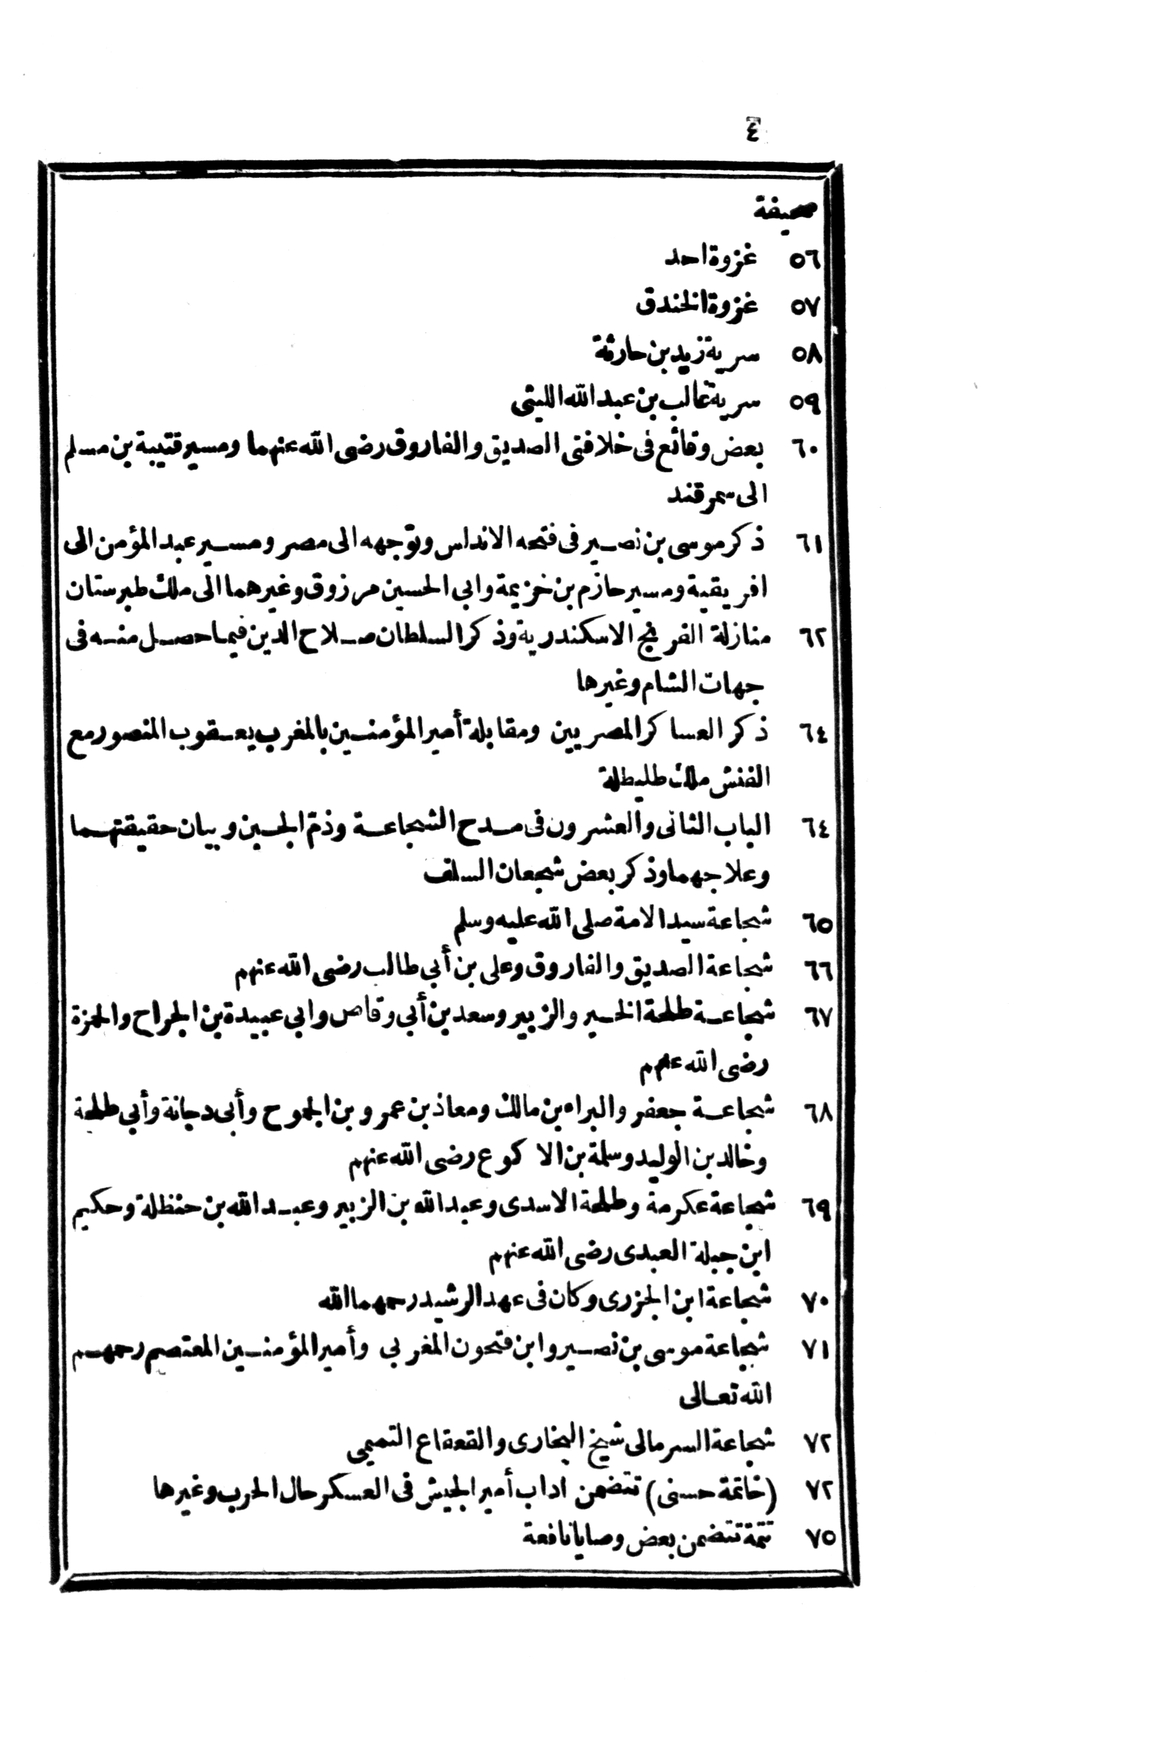 ٤
صحيفة
٥٦ غزوة احد
٥٧ غزوة الخندق
٥٨ سرية زيد بن حارثة
٥٩ سرية غالب بن عبد الله الليثى
٦٠ بعض وقائع فى خلافتى الصديق والفاروق رضى الله عنهما ومسير قتيبة بن مسلم
الى سمرقند
٦١ ذكر موسى بن نصير فى فتحه الاندلس وتوجهه الى مصر ومسير عبد المؤمن الى
افريقية ومسير حازم بن خزيمة وابى الحسين مرزوق وغيرهما الى ملك طبرستان
٦٢ منازلة الفرنج الاسكندرية وذكر السلطان صلاح الدين فيما حصل منه فى
جهات الشام وغيرها
٦٤ ذكر العساكر المصريين ومقابلة أمير المؤمنين بالمغرب يعقوب المنصور مع
الفنش ملك طليطلة
٦٤ الباب الثانى والعشرون فى مدح الشجاعة وذم الجبن وبيان حقيقتهما
وعلاجهما وذكر بعض شجعان السلف
٦٥ شجاعة سيد الامة صلى الله عليه وسلم
٦٦ شجاعة الصديق والفاروق وعلى بن أبى طالب رضى الله عنهم
٦٧ شجاعة طلحة الخير والزبير وسعد بن أبى وقاص وابى عبيدة بن الجراح والحمزة
رضى الله عنهم
٦٨ شجاعة جعفر والبراء بن مالك ومعاذ بن عمرو بن الجموح وأبى دجانة وأبى طلحة
وخالد بن الوليد وسلمة بن الاكوع رضى الله عنهم
٦٩ شجاعة عكرمة وطلحة الاسدى وعبد الله بن الزبير وعبد الله بن حنظلة وحكيم
ابن جبلة العبدى رضى الله عنهم
٧٠ شجاعة ابن الجزرى وكان فى عهد الرشيد رحمهما الله
٧١ شجاعة موسى بن نصير وابن فتحون المغربى وأمير المؤمنين المعتصم رحمهم
الله تعالى
٧٢ شجاعة السرمالى شيخ البخارى والقعقاع التميمى
٧٢ (خاتمة حسنى) تتضمن اداب أمير الجيش فى العسكر حال الحرب وغيرها
٧٥ تتمة تتضمن بعض وصايا نافعة